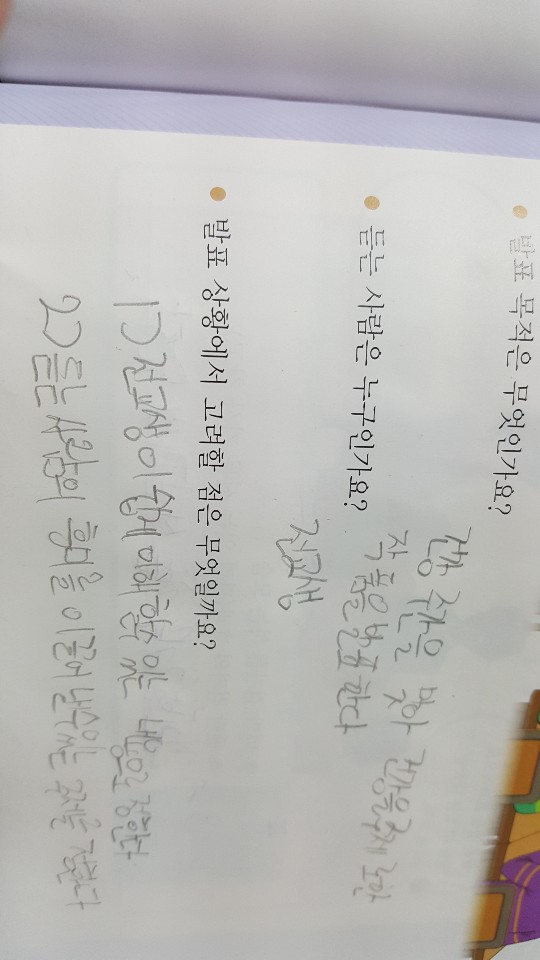 • 발표 목적은 무엇인가요?
개학을 맞아
작품을 발표한다
• 듣는 사람은 누구인가요?
전교생
• 발표 상황에서 고려할 점은 무엇일까요?
1) 전교생이 쉽게 이해할 수 있는 내용을 정한다
2) 듣는 사람의 흥미를 이끌어 낼 수 있는 주제를 정한다